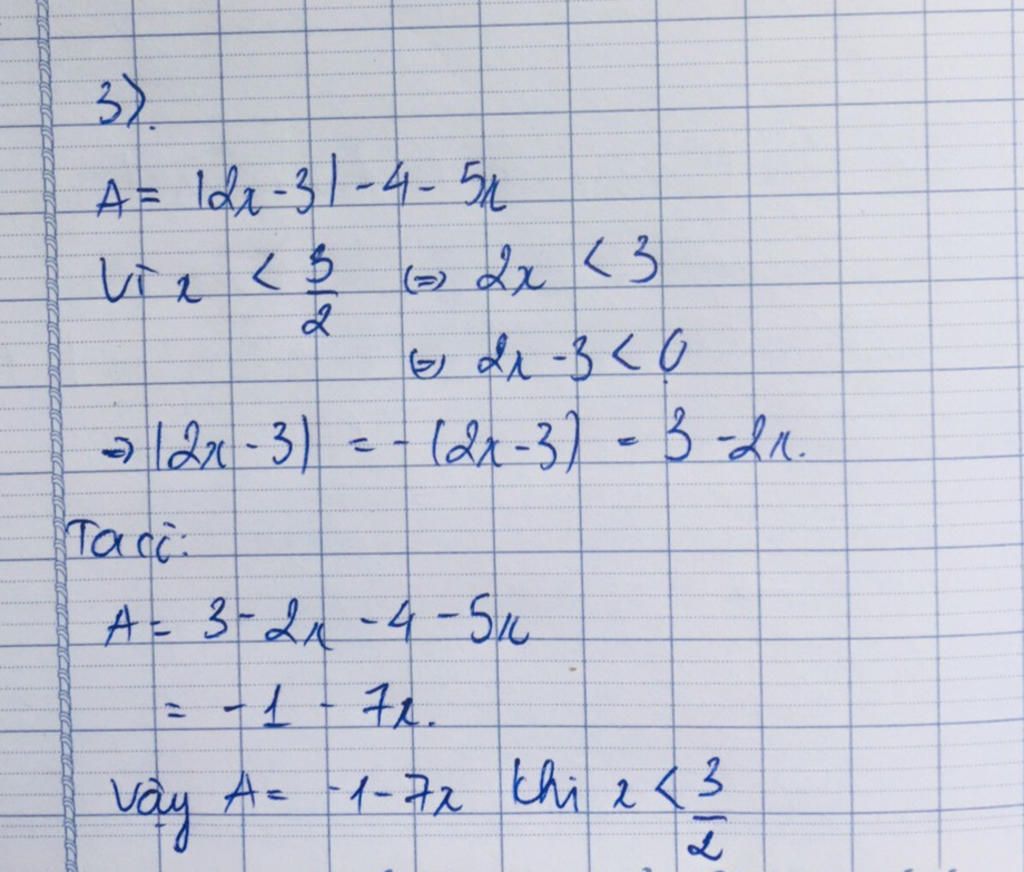 3).
A = |2x - 3| - 4 - 5x
Vì x < 3/2 (=) 2x < 3
(=) 2x - 3 < 0
=> |2x - 3| = - (2x - 3) = 3 - 2x.
Ta có:
A = 3 - 2x - 4 - 5x
= - 1 - 7x.
Vậy A = -1 - 7x khi x < 3/2